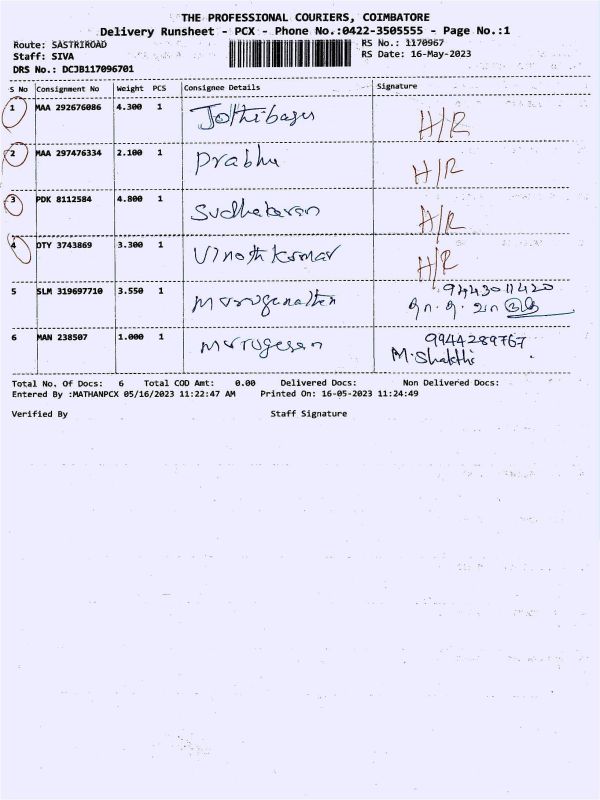 THE PROFESSIONAL COURIERS, COIMBATORE
Delivery Runsheet - PCX - Phone No.:0422-3505555 - Page No.:1
Route: SASTRIROAD RS No.: 1170967
Staff: SIVA RS Date: 16-May-2023
DRS No.: DCJB117096701
S No Consignment No Weight PCS Consignee Details Signature
1 MAA 292676086 4.300 1 Jothibasu H/R
2 MAA 297476334 2.100 1 Prabhu H/R
3 PDK 8112584 4.800 1 Sudhakaran H/R
4 OTY 3743869 3.300 1 Vinoth Kumar H/R
5 SLM 319697710 3.550 1 Muruganathan 9443011420
6 MAN 238507 1.000 1 Murugesan 9944289767
M. Shakthi
Total No. Of Docs: 6 Total COD Amt: 0.00 Delivered Docs: Non Delivered Docs:
Entered By :MATHANPCX 05/16/2023 11:22:47 AM Printed On: 16-05-2023 11:24:49
Verified By Staff Signature